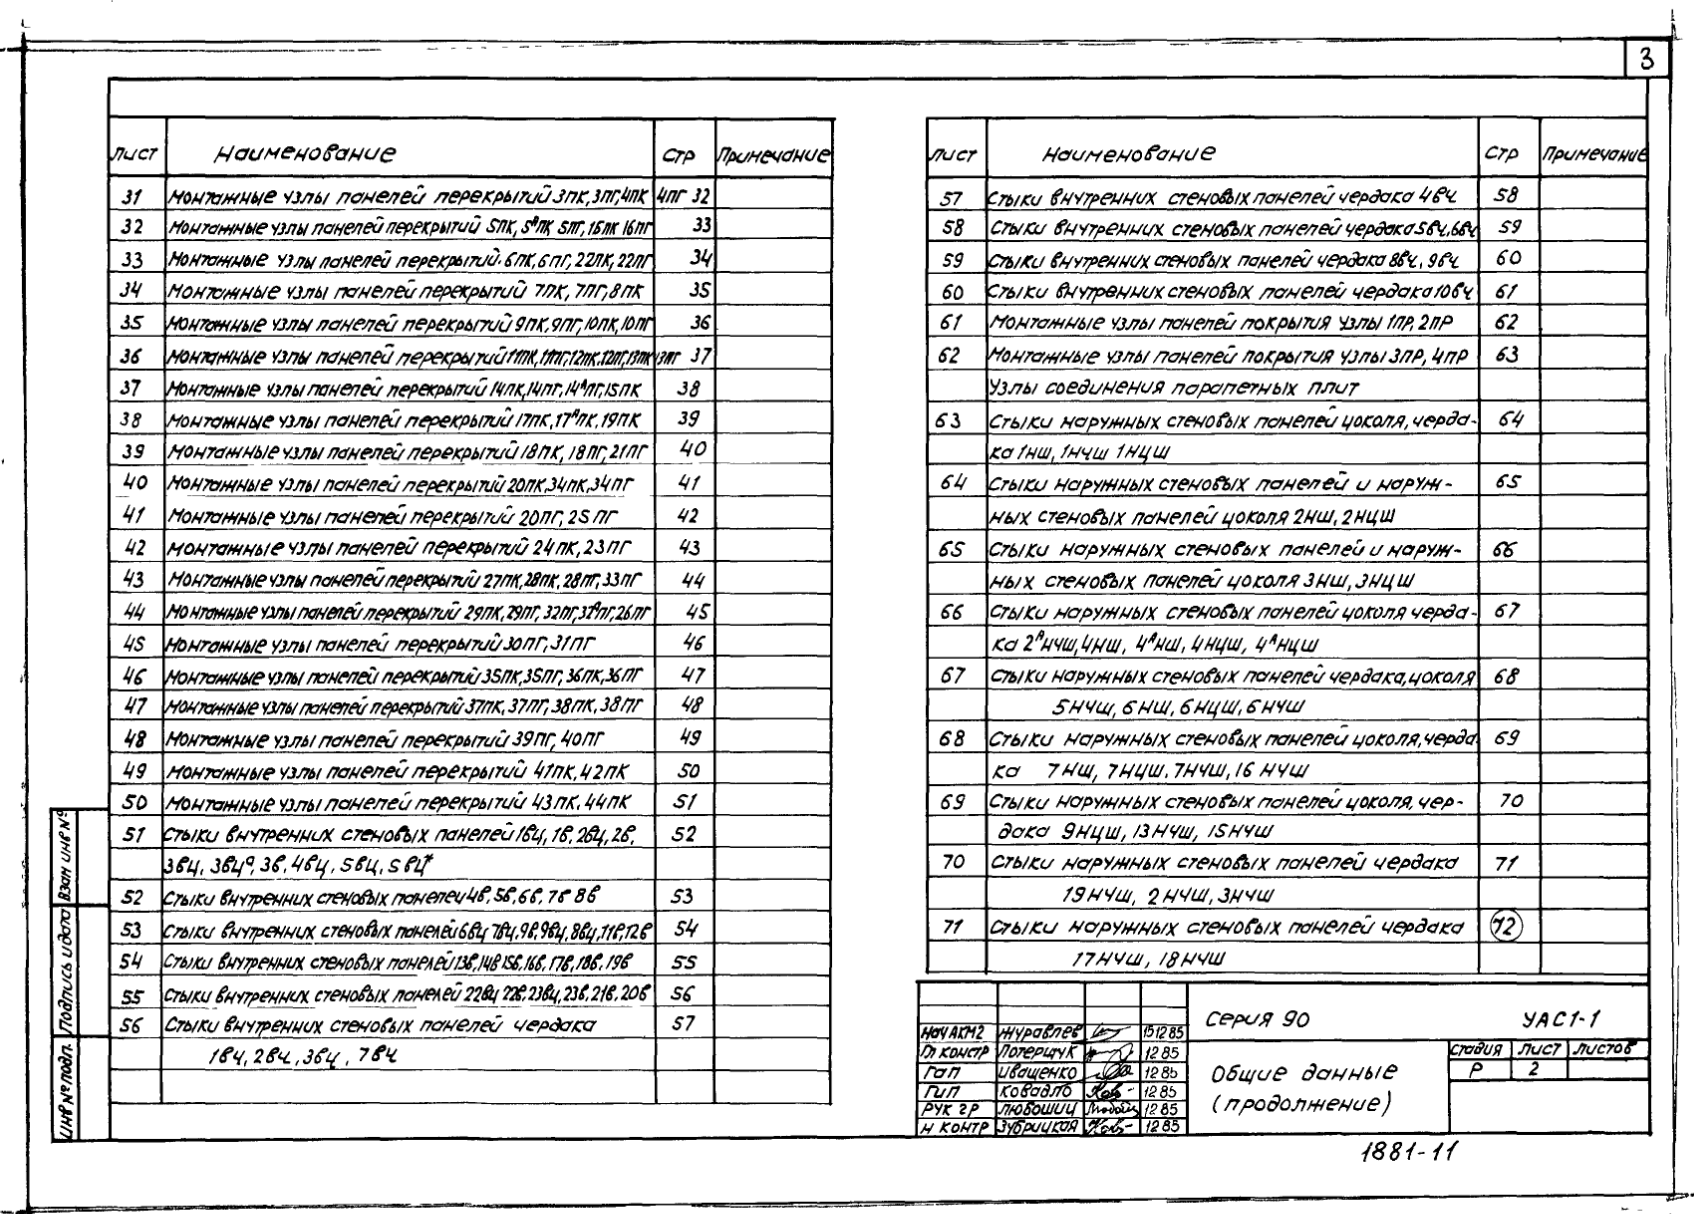 3
Лист Наименование Стр Примечание
31 Монтажные узлы панелей перекрытий 3пк, 3пг, 4пк 4пг 32
32 Монтажные узлы панелей перекрытий 5пк, 5ᴬпк 5пг, 16пк 16пг 33
33 Монтажные узлы панелей перекрытий 6пк, 6пг, 22пк, 22пг 34
34 Монтажные узлы панелей перекрытий 7пк, 7пг, 8пк 35
35 Монтажные узлы панелей перекрытий 9пк, 9пг, 10пк, 10пг 36
36 Монтажные узлы панелей перекрытий 11пк, 11пг, 12пк, 12пг, 13пк 13пг 37
37 Монтажные узлы панелей перекрытий 14пк, 14пг, 14ᴬпг, 15пк 38
38 Монтажные узлы панелей перекрытий 17пк, 17ᴬпк, 19пк 39
39 Монтажные узлы панелей перекрытий 18пк, 18пг, 21пг 40
40 Монтажные узлы панелей перекрытий 20пк, 34пк, 34пг 41
41 Монтажные узлы панелей перекрытий 20пг, 25пг 42
42 Монтажные узлы панелей перекрытий 24пк, 23пг 43
43 Монтажные узлы панелей перекрытий 27пк, 28пк, 28пг, 33пг 44
44 Монтажные узлы панелей перекрытий 29пк, 29пг, 32пг, 32ᴬпг, 26пг 45
45 Монтажные узлы панелей перекрытий 30пг, 31пг 46
46 Монтажные узлы панелей перекрытий 35пк, 35пг, 36пк, 36пг 47
47 Монтажные узлы панелей перекрытий 37пк, 37пг, 38пк, 38пг 48
48 Монтажные узлы панелей перекрытий 39пг, 40пг 49
49 Монтажные узлы панелей перекрытий 41пк, 42пк 50
50 Монтажные узлы панелей перекрытий 43пк, 44пк 51
51 Стыки внутренних стеновых панелей 1вц, 1в, 2вц, 2в, 52
3вц, 3вцᵃ, 3в, 4вц, 5вц, 5вц*
52 Стыки внутренних стеновых панелей 4в, 5в, 6в, 7в 8в 53
53 Стыки внутренних стеновых панелей 6вц 7вц, 9в, 9вц, 8вц, 11в, 12в 54
54 Стыки внутренних стеновых панелей 13в, 14в 15в, 16в, 17в, 18в, 19в 55
55 Стыки внутренних стеновых панелей 22вц 22в, 23вц, 23в, 21в, 20в 56
56 Стыки внутренних стеновых панелей чердака 57
1вч, 2вч, 3вч, 7вч
Лист Наименование Стр Примечание
57 Стыки внутренних стеновых панелей чердака 4вч 58
58 Стыки внутренних стеновых панелей чердака 5вч, 6вч 59
59 Стыки внутренних стеновых панелей чердака 8вч, 9вч 60
60 Стыки внутренних стеновых панелей чердака 10вч 61
61 Монтажные узлы панелей покрытия узлы 1пр, 2пр 62
62 Монтажные узлы панелей покрытия узлы 3пр, 4пр 63
Узлы соединения парапетных плит
63 Стыки наружных стеновых панелей цоколя, черда- 64
ка 1нш, 1нчш 1нцш
64 Стыки наружных стеновых панелей и наруж- 65
ных стеновых панелей цоколя 2нш, 2нцш
65 Стыки наружных стеновых панелей и наруж- 66
ных стеновых панелей цоколя 3нш, 3нцш
66 Стыки наружных стеновых панелей цоколя черда- 67
ка 2ᴬнчш, 4нш, 4ᴬнш, 4нцш, 4ᴬнцш
67 Стыки наружных стеновых панелей чердака, цоколя 68
5нчш, 6нш, 6нцш, 6нчш
68 Стыки наружных стеновых панелей цоколя, черда 69
ка 7нш, 7нцш, 7нчш, 16нчш
69 Стыки наружных стеновых панелей цоколя, чер- 70
дака 9нцш, 13нчш, 15нчш
70 Стыки наружных стеновых панелей чердака 71
19нчш, 2нчш, 3нчш
71 Стыки наружных стеновых панелей чердака 72
17нчш, 18нчш
Взам инв №
Подпись и дата
Инв № подл.
Нач АКМ2 Журавлев 15 12 85
Гл констр Потерщук 12 85
ГАП Иващенко 12 85
ГИП Ковадло 12 85
Рук гр Любошиц 12 85
Н контр Зубрицкая 12 85
Серия 90 УАС1-1
Общие данные
(продолжение)
Стадия Лист Листов
Р 2
1881-11